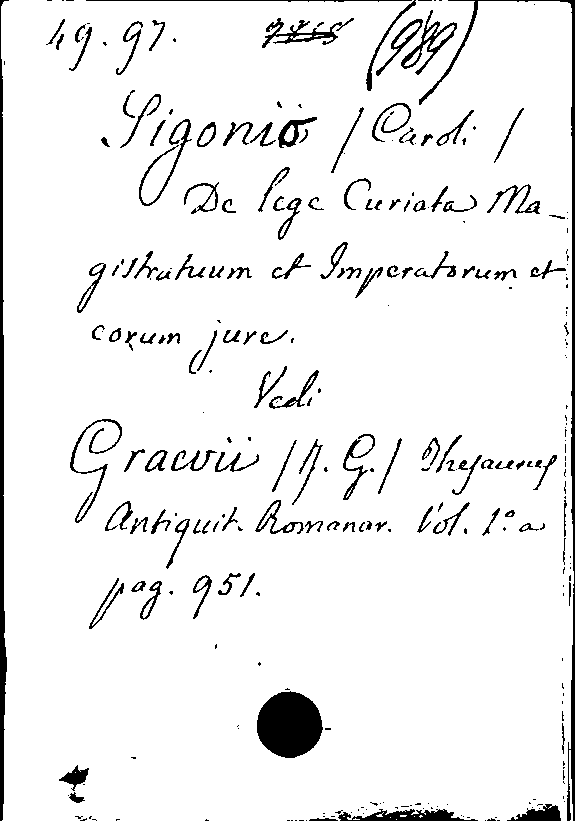 49.97. (989)
Sigonio / Caroli /
De lege Curiata Ma-
gistratuum et Imperatorum et
eorum jure.
Vedi
Graevii / J. G. / Thesaurus
Antiquit. Romanar. Vol. 1º a
pag. 951.